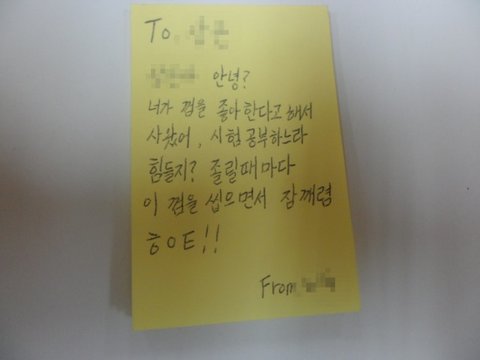 To.
안녕?
너가 껌을 좋아한다고해서
사왔어, 시험공부하느라
힘들지? 졸릴때마다
이 껌을 씹으면서 잠깨렴
ㅎㅇE!!
From